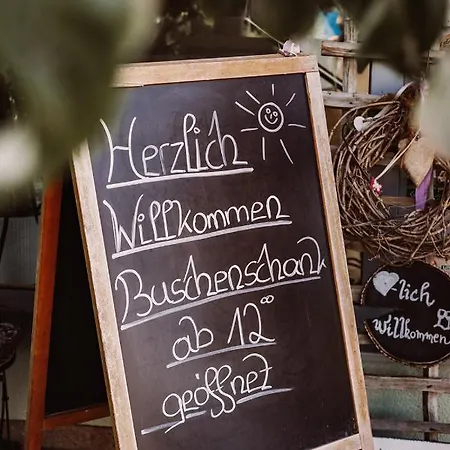 Herzlich
Willkommen
Buschenschank
ab 12⁰⁰
geöffnet
lich
willkommen